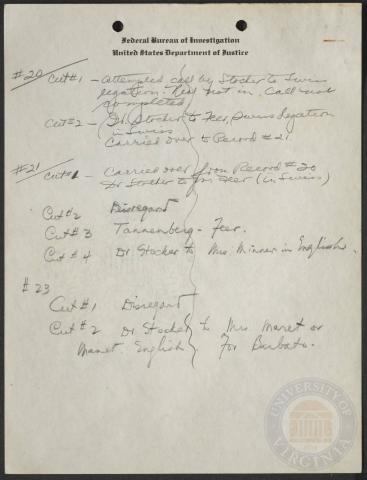 Federal Bureau of Investigation
United States Department of Justice
#20
Cut #1 - Attempted call by Stocker to Swiss
legation. Feer not in, call not
completed
Cut #2 - Dr Stocker to Feer, Swiss legation
(in Swiss)
Carried over to Record #21
#21
Cut #1 Carried over from Record #20
Dr Stocker to Feer (in Swiss)
Cut #2 Disregard
Cut #3 Tannenberg - Feer.
Cut #4 Dr Stocker to Mrs. Minner in English.
#23
Cut #1 Disregard
Cut #2 Dr Stocker to Mrs Maret or
Manet. English. For Barbato.
UNIVERSITY OF VIRGINIA